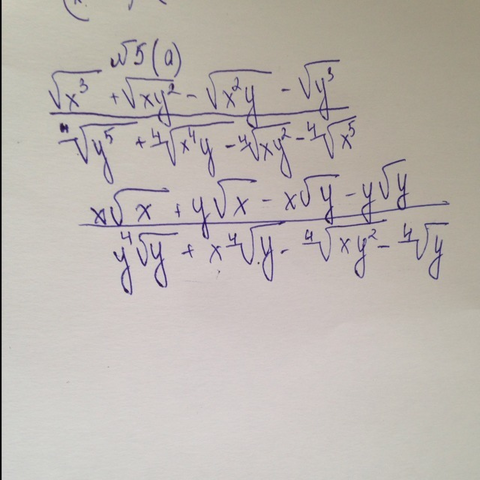 №5(a)
√x³ + √xy² - √x²y - √y³
⁴√y⁵ + ⁴√x⁴y - ⁴√xy² - ⁴√x⁵
x√x + y√x - x√y - y√y
y⁴√y + x⁴√y - ⁴√xy² - ⁴√y